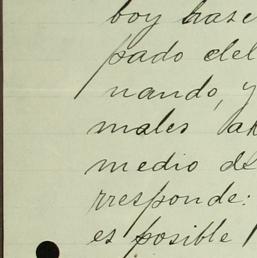 boy hase
pado del
nando, y
males
medio de
rresponde:
es posible